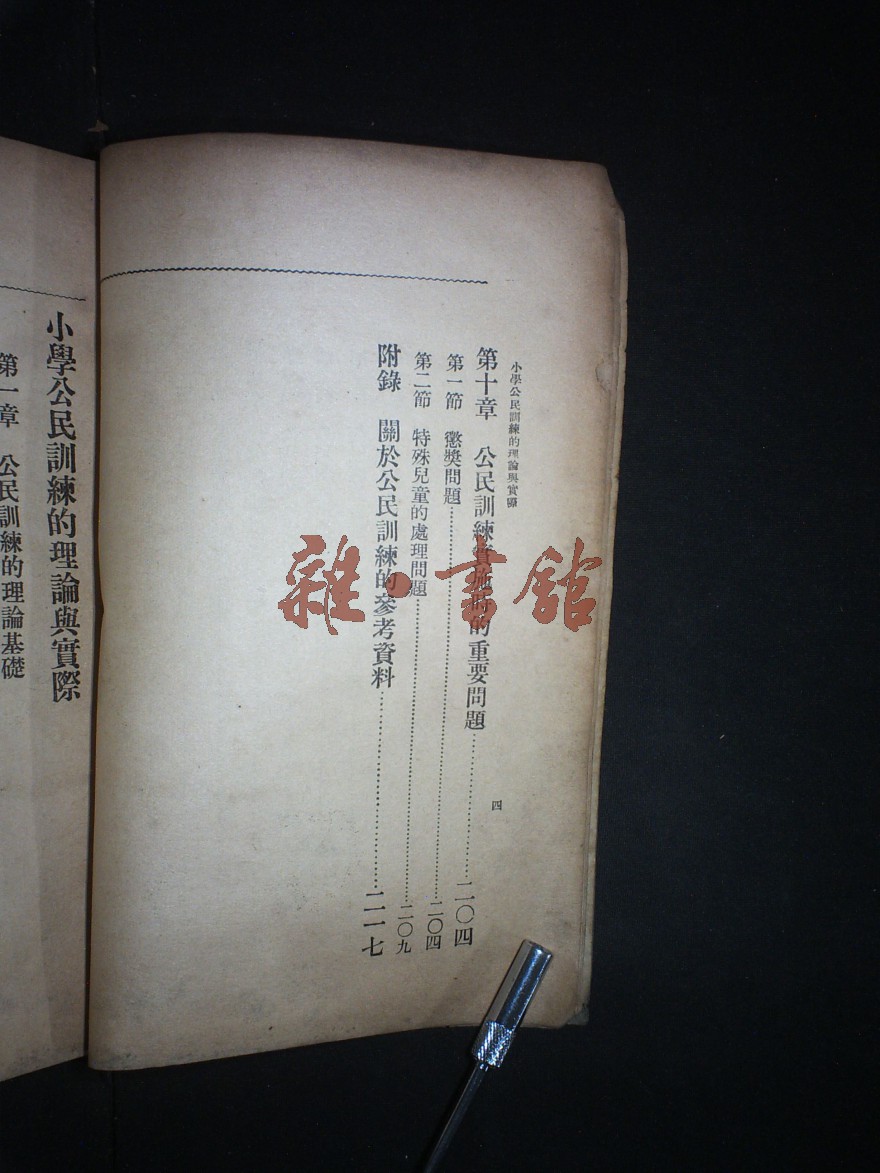 小學公民訓練的理論與實際
第十章 公民訓練實施時的重要問題…………二〇四
第一節 懲獎問題…………二〇四
第二節 特殊兒童的處理問題…………二〇九
附錄 關於公民訓練的參考資料…………二一七
四
小學公民訓練的理論與實際
第一章 公民訓練的理論基礎
雜·書館